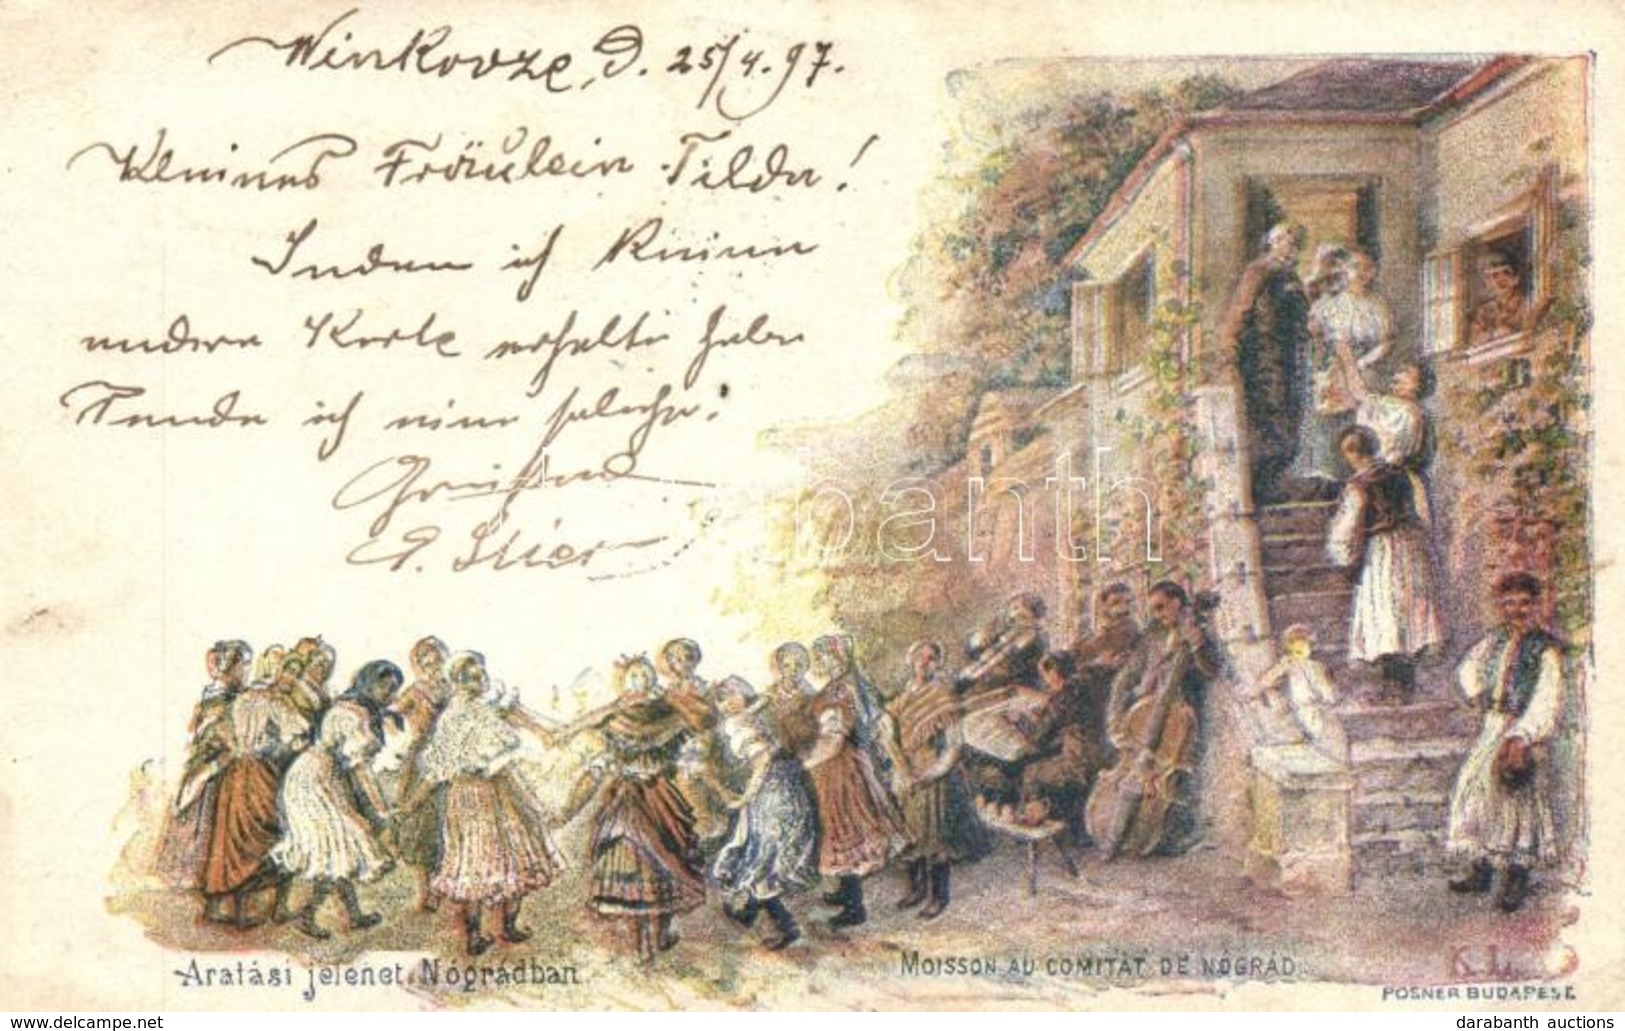 Winkovze, D. 25/4.97.
Kleines Fräulein Tilda!
Indem ich keine
andere Karte erhalten habe
sende ich eine solche.
G. Stier
Darabanth
Aratási jelenet Nógrádban.
MOISSON AU COMITAT DE NÓGRÁD.
POSNER BUDAPEST.
https://www.delcampe.net
darabanth auctions